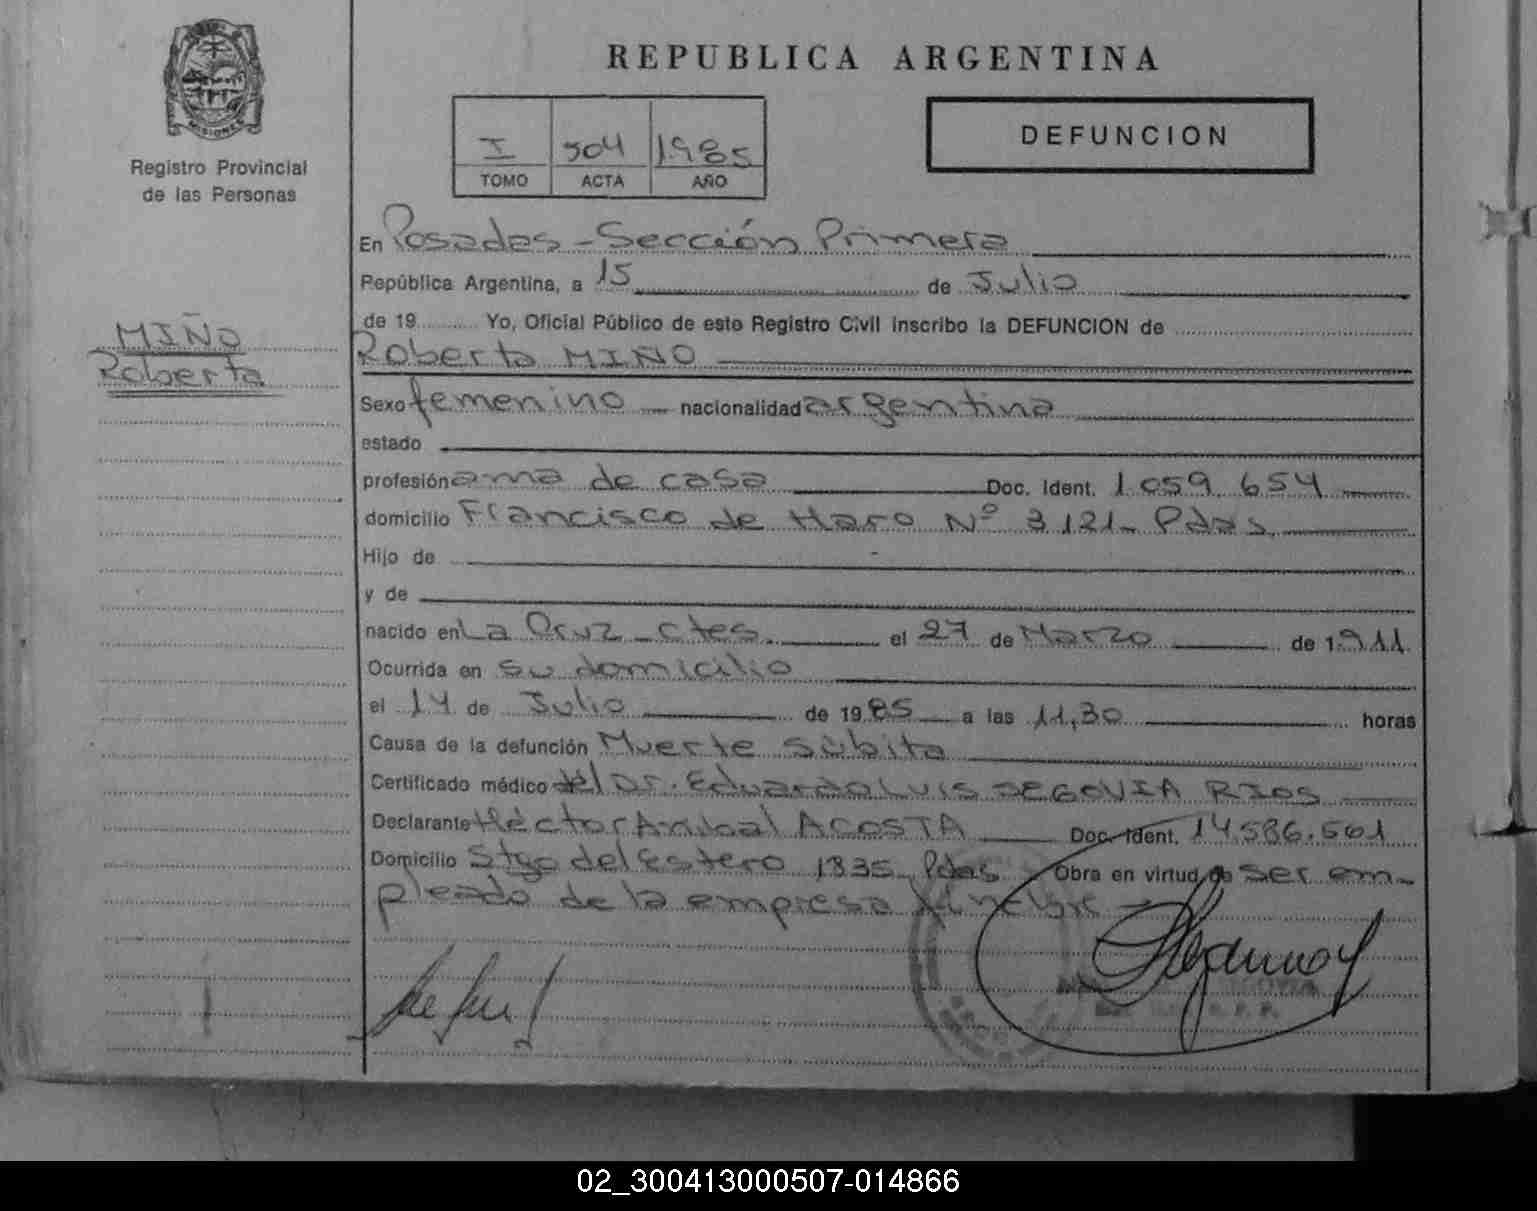 REPUBLICA ARGENTINA
MISIONES
Registro Provincial
de las Personas
I 504 1985
TOMO ACTA AÑO
DEFUNCION
MIÑO
Roberta
En Posadas - Sección Primera
República Argentina, a 15 de Julio
de 19 Yo, Oficial Público de este Registro Civil inscribo la DEFUNCION de
Roberta MIÑO
Sexo femenino nacionalidad argentina
estado
profesión ama de casa Doc. Ident. 1.059.654
domicilio Francisco de Haro Nº 3.121 - Pdas.
Hijo de
y de
nacido en La Cruz - Ctes. el 27 de Marzo de 1911
Ocurrida en su domicilio
el 14 de Julio de 1985 a las 11,30 horas
Causa de la defunción Muerte súbita
Certificado médico del Dr. Eduardo Luis SEGOVIA RIOS
Declarante Héctor Anibal ACOSTA Doc. Ident. 14.586.561
Domicilio Stgo del Estero 1835 Pdas Obra en virtud de ser em-
pleado de la empresa fúnebre
02_300413000507-014866